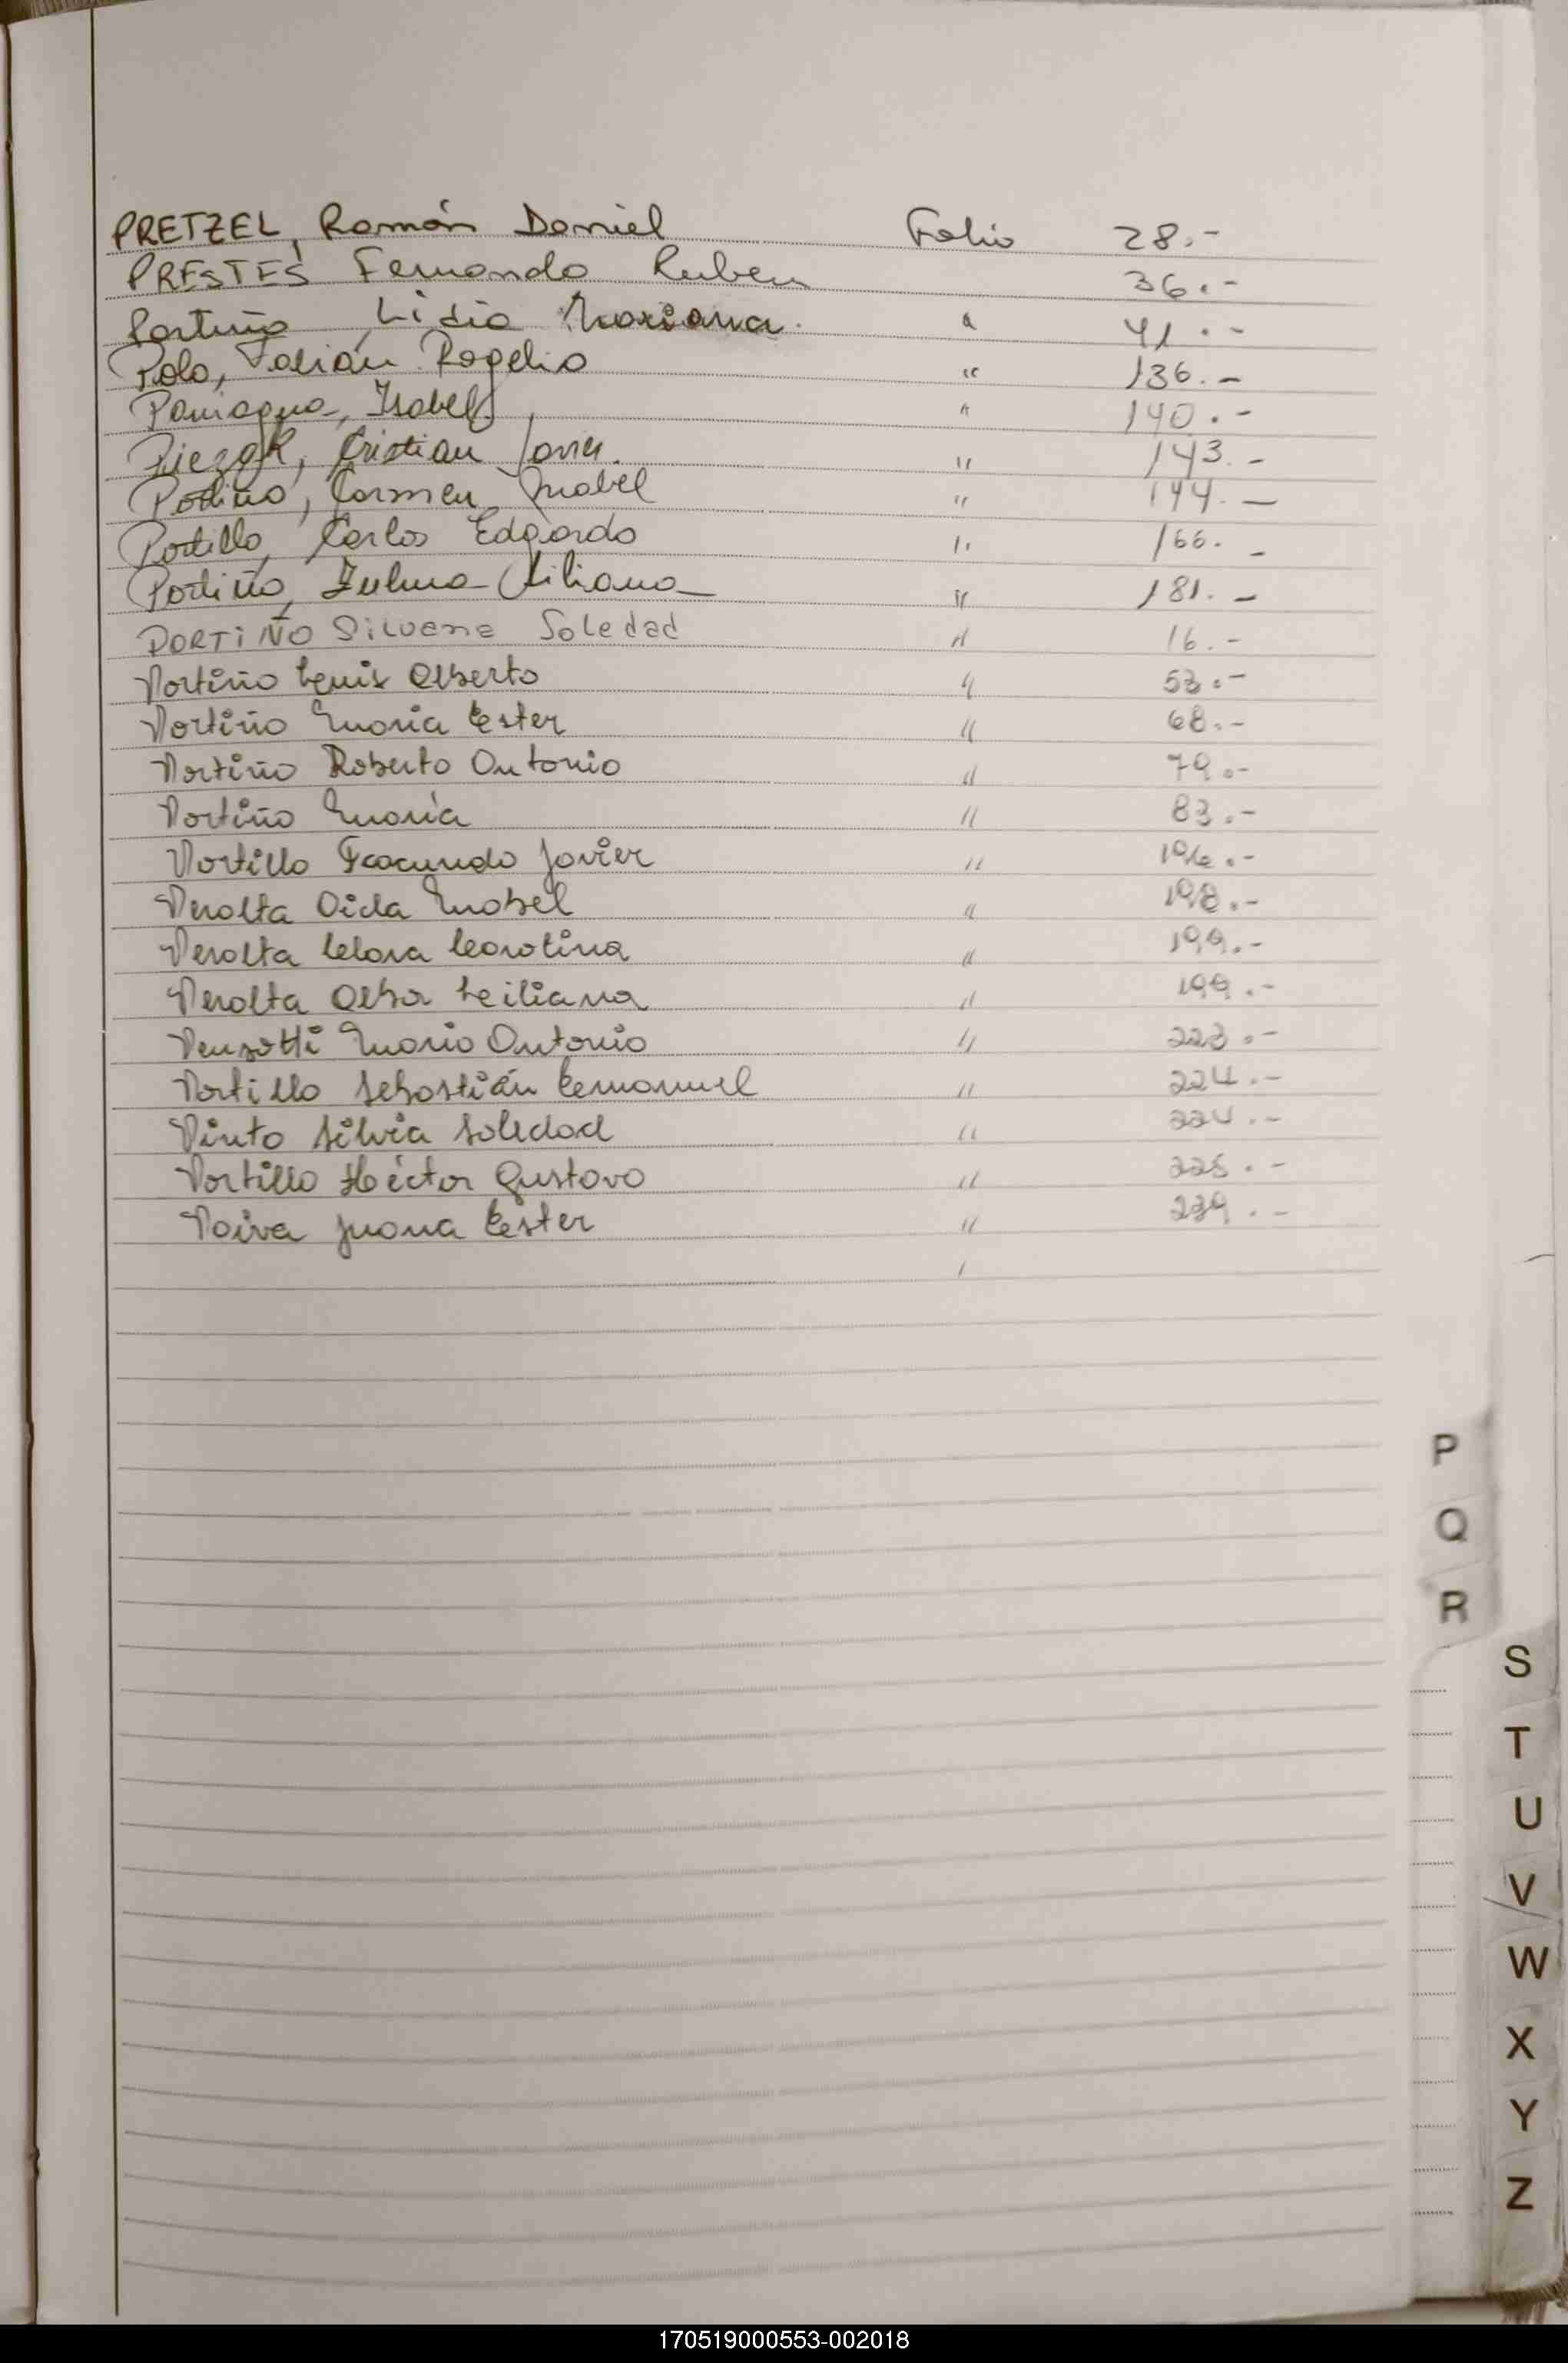 PRETZEL, Ramón Daniel Folio 28.-
PRESTES Fernando Ruben 36.-
Portiño, Lidia Mariana. " 41.-
Polo, Fabián Rogelio " 136.-
Paniagua, Isabel " 140.-
Cristian Javier. " 143.-
Portiño, Carmen Mabel " 144.-
Portillo, Carlos Edgardo " 166.-
Portiño, Zulma Liliana " 181.-
PORTIÑO Silvana Soledad " 16.-
Portiño Luis Alberto " 53.-
Portiño María Ester " 68.-
Portiño Roberto Antonio " 79.-
Portiño María " 83.-
Portillo Facundo Javier "
Peralta Aida Mabel " 198.-
Peralta Clara Carolina " 199.-
Peralta Alba Liliana " 199.-
Pensotti Mario Antonio " 223.-
Portillo Sebastián Emanuel " 224.-
Pinto Silvia Soledad " 224.-
Portillo Héctor Gustavo " 225.-
Paiva Juana Ester " 239.-
P
Q
R
S
T
U
V
W
X
Y
Z
170519000553-002018